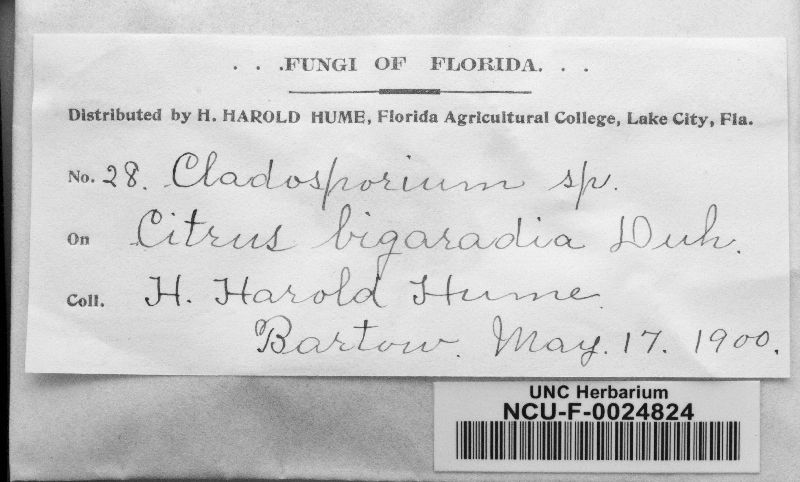 . . .FUNGI OF FLORIDA. . .
Distributed by H. HAROLD HUME, Florida Agricultural College, Lake City, Fla.
No. 28. Cladosporium sp.
On Citrus bigaradia Duh.
Coll. H. Harold Hume.
Bartow. May. 17. 1900.
UNC Herbarium
NCU-F-0024824